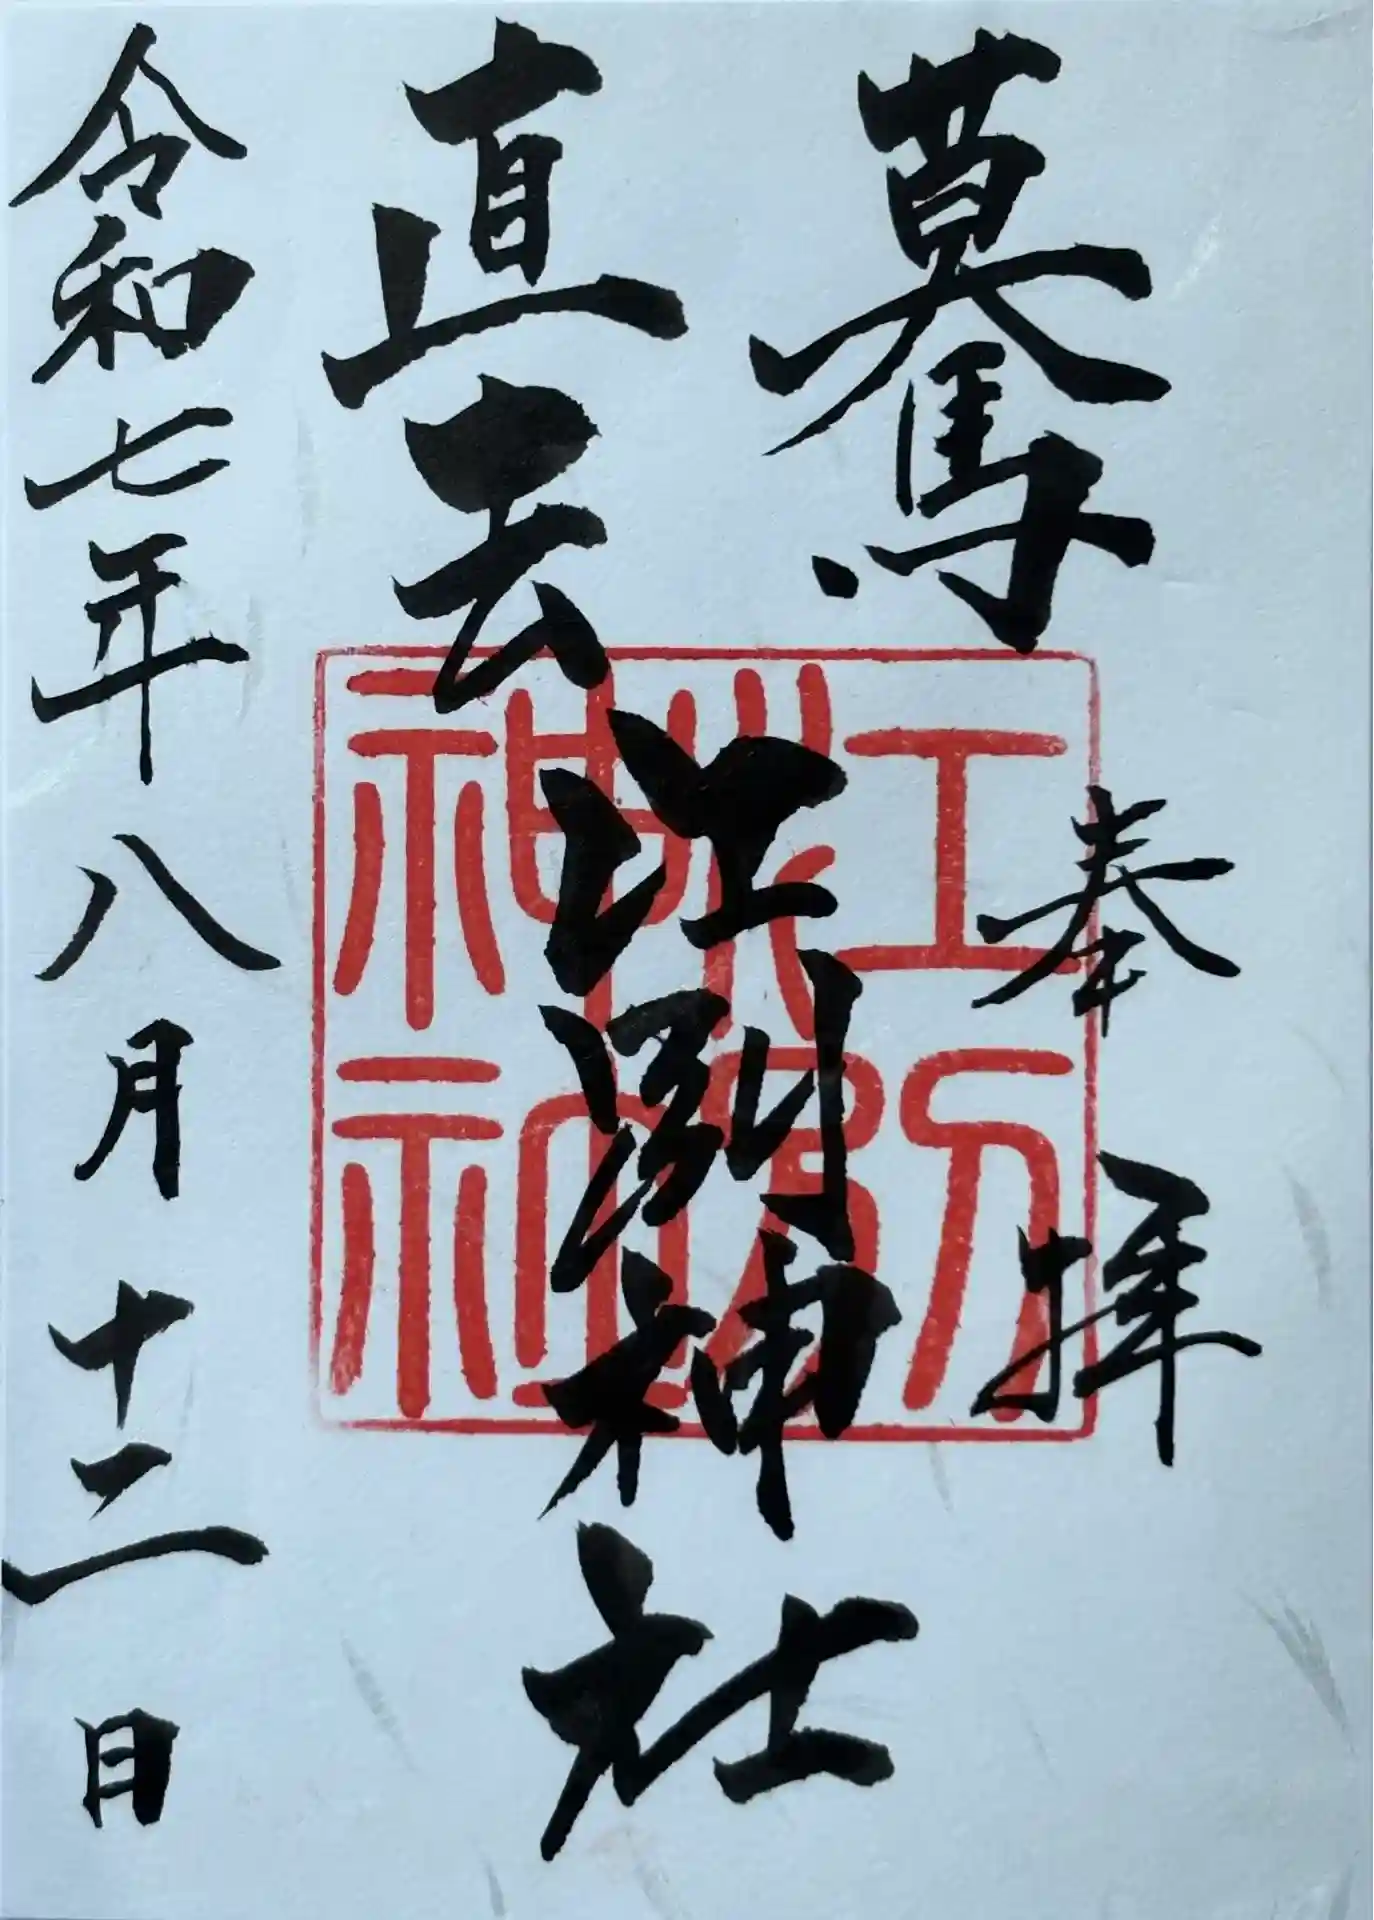 驀
直去
奉拝
江別神社
江別神社
令和七年八月十二日